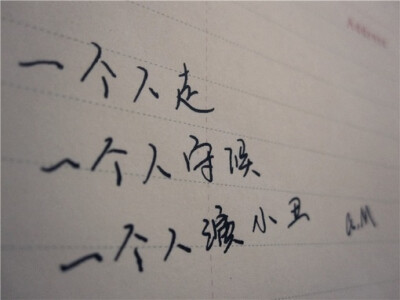 一个人走
一个人守候
一个人演小丑 a.M